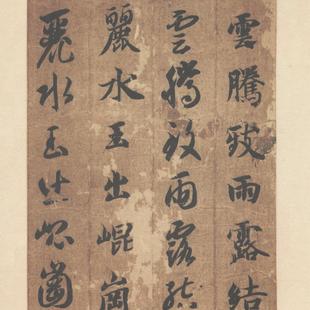 雲騰致雨露結
雲騰致雨露結
麗水玉出崐崗
麗水玉出崐崗